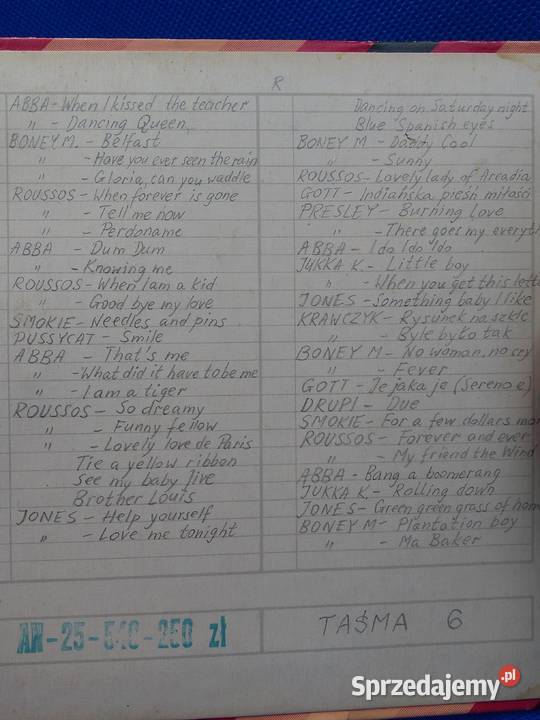 R
ABBA - When I kissed the teacher
" - Dancing Queen
BONEY M. - Belfast
" - Have you ever seen the rain
" - Gloria, can you waddle
ROUSSOS - When forever is gone
" - Tell me now
" - Perdoname
ABBA - Dum Dum
" - Knowing me
ROUSSOS - When I am a kid
" - Good bye my love
SMOKIE - Needles and pins
PUSSYCAT - Smile
ABBA - That's me
" - What did it have to be me
" - I am a tiger
ROUSSOS - So dreamy
" - Funny fellow
" - Lovely love de Paris
Tie a yellow ribbon
See my baby jive
Brother Louis
JONES - Help yourself
" - Love me tonight
Dancing on Saturday night
Blue Spanish eyes
BONEY M - Daddy Cool
" - Sunny
ROUSSOS - Lovely lady of Arcadia
GOTT - Indiańska pieśń miłości
PRESLEY - Burning Love
" - There goes my everyth
ABBA - I do I do I do
JUKKA K. - Little boy
" - When you get this lette
JONES - Something baby I like
KRAWCZYK - Rysunek na szkle
" - Byle było tak
BONEY M - No woman, no cry
" - Fever
GOTT - Je jaka je (Sereno e)
DRUPI - Due
SMOKIE - For a few dollars mor
ROUSSOS - Forever and ever
" - My friend the Wind
ABBA - Bang a boomerang
JUKKA K. - Rolling down
JONES - Green green grass of hom
BONEY M - Plantation boy
" - Ma Baker
AN-25-540-250 zł
TAŚMA 6
Sprzedajemy.pl